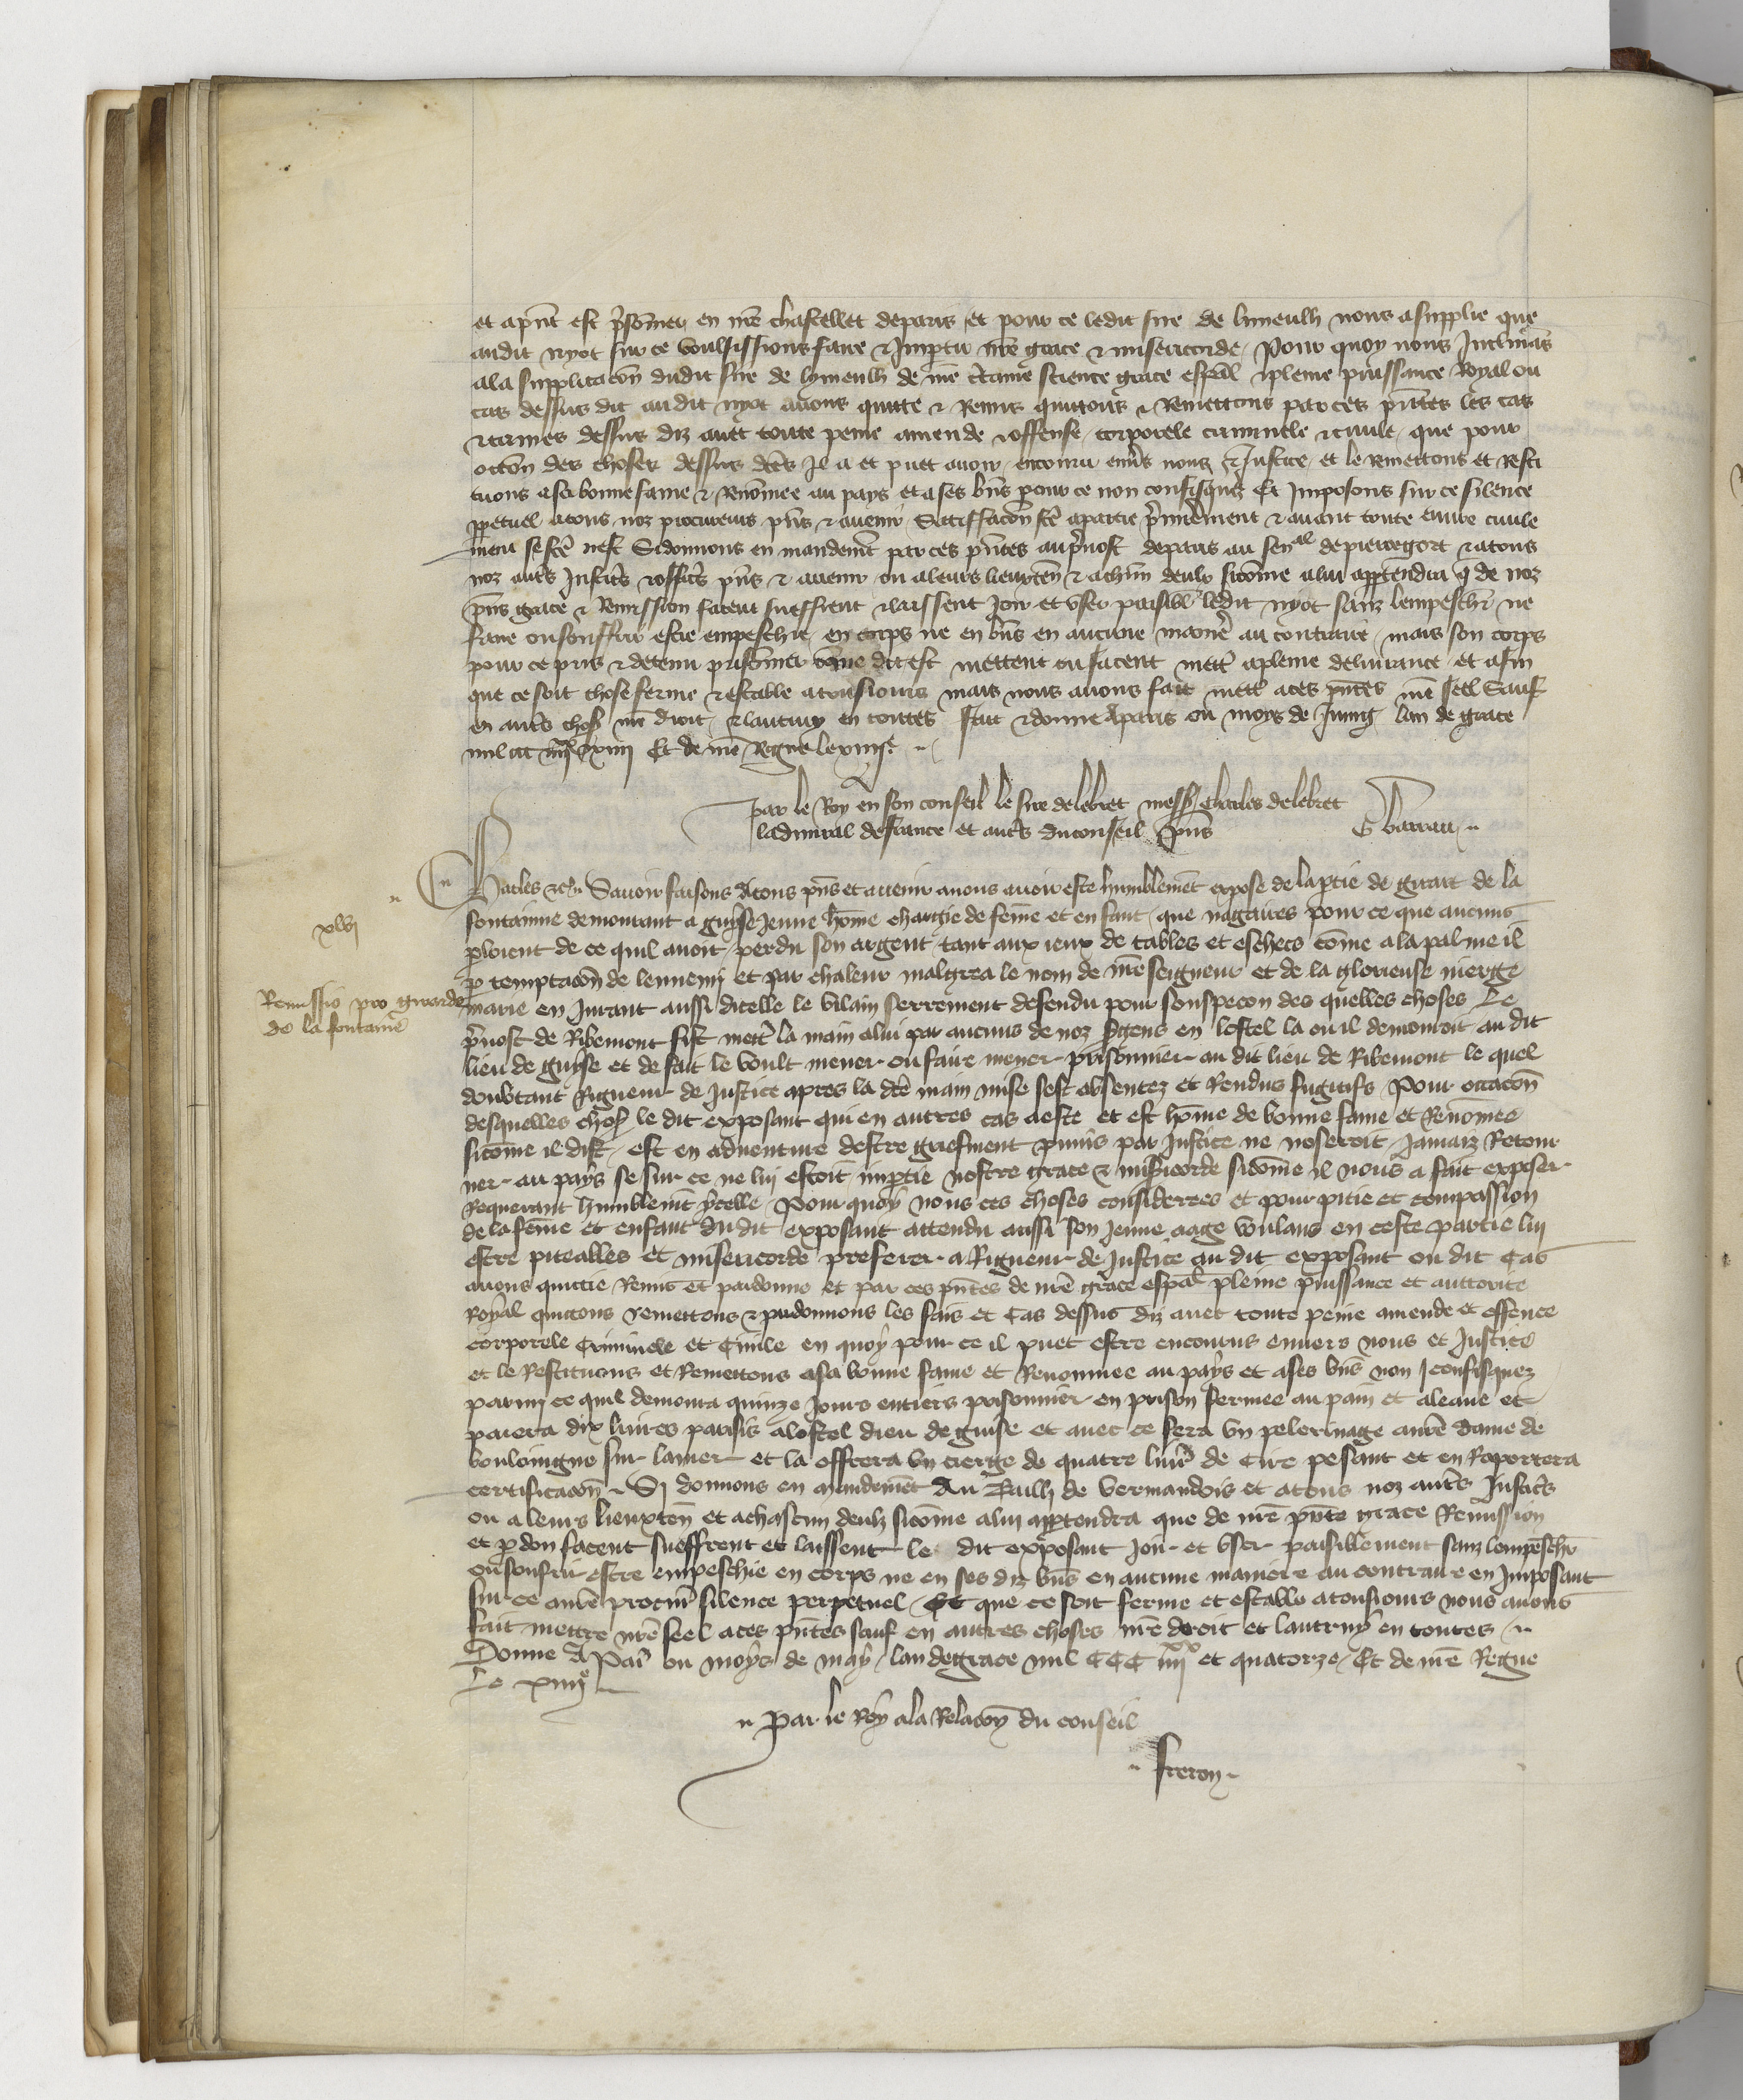 et apnt est prisonier en nre chastellet de paris et pour ce ledit sire de limeulh nous a supplie que
audit nyot sur ce voulsissions faire & Impartir nre grace & misericorde Pour quoy nous Inclinans
a la supplicacon dudit sire de lymeulh de nre certaine science grace espal & pleine puissance Royal ou
cas dessus dit audit nyot avons quitte & Remis quittons & Remettons par ces pntes les cas
& crimes dessus diz avec toute peine amende & offense corporele criminele & civile que pour
occon des choses dessus dces Il a et puet avoir encouru envs nous & Justice et le remettons et resti
tuons a sa bonne fame & Renomee au pays et a ses bns pour ce non confisquez Et Imposons sur ce silence
ppetuel a tous noz procureurs pns & avenir Satiffacon fce a partie premierement & avant toute euvre civile
ment se fce nest Si donnons en mandemt par ces pntes au prevost de paris au senal de pierregort & a tous
noz autrs Justicrs & officrs pns & avenir ou a leurs lieuxten & a chun deulx sicome a lui appartendra q de noz
pns grace & Remission facent sueffrent & laissent Joir et user paisibl ledit nyot sanz lempeschr ne
faire ou souffrir estre empeschie en corps ne en bns en aucune manre au contraire mais son corps
pour ce pris & detenu prisonier come dit est mettent ou facent mettr a pleine delivrance et afin
que ce soit chose ferme & estable a tousiours mais nous avons fait mettr a ces pntes nre seel Sauf
en autrs chos nre droit & lautruy en toutes Fait & donne a paris ou moys de Juing lan de grace
mil ccc iiijxx xiiij Et de nre Regne le xiiije
par le Roy en son conseil le sire delebret messe Charles delebret
ladmiral de france et autrs du conseil pns G barrau
Charles &c Savoir faisons a tous pns et avenir a nous avoir este humblement expose de la ptie de girart de la
fontainne demourant a guyse Jeune home chargie de feme et enfant que nagaires pour ce que aucuns
ploient de ce quil avoit perdu son argent tant aux ieux de tables et eschecs come a la palme il
xlvj
p temptacon de lennemy et par chaleur malgrea le nom de nre seigneur et de la glorieuse vierge
Remissio pro girardo
de la fontaine
marie en Jurant aussi dicelle le vilain serrement defendu pour souspecon des quelles choses Le
prevost de Ribemont fist mettr la main a lui par aucuns de noz sergens en lostel la ou il demouroit au dit
lieu de guyse et de fait le voult mener ou faire mener prisonnier au dit lieu de Ribemont le quel
doubtant Rigueur de Justice apres la dce main mise sest absentez et Rendus fugitifs Pour occacon
desquelles chos le dit exposant qui en autres cas a este et est home de bonne fame et Renomee
sicome il dist est en adventure destre griefment punis par Justice ne noseroit Jamaiz Retour
ner au pays se sur ce ne lui estoit impartie nostre grace & misericorde sicome il nous a fait exposer
Requerant humblemt ycelle Pour quoy nous ces choses considerees et pour pitie et compassion
de la feme et enfant du dit exposant attendu aussi son jeune aage voulans en ceste partie lui
estre piteables et misericorde preferer a Rigueur de Justice au dit exposant ou dit cas
avons quittie Remis et pardonne et par ces pntes de nre grace espal pleine puissance et auttorite
Royal quittons remettons & pardonnons les fais et cas dessus diz avec toute peine amende et offence
corporele Criminele et Civile en quoy pour ce il puet estre encourus envers nous et Justice
et le Restituons et Remettons a sa bonne fame et Renommee au pays et a ses bns non confisquez
parmi ce quil demoura quinze Jours entiers prisonnier en prison fermee au pain et a leaue et
paiera dix livres parisis a lostel dieu de guise et avec ce fera un pelerinage a nre dame de
bouloingne sur la mer et la offrera un cierge de quatre livrs de Cire pesant et en Raportera
certificacon Si donnons en mandement Au Bailli de vermandois et a tous noz autrs Justicrs
ou a leurs lieuxten et a chascun deulx sicome a lui appartendra que de nre pnte grace Remission
et pdon facent sueffrent et laissent le dit exposant Joir et user paisiblement sanz lempeschr
ou soufrir estre empeschie en corps ne en ses diz bns en aucune maniere au contraire en Imposant
sur ce a nre procur silence perpetuel Et que ce soit ferme et estable a tousiours nous avons
fait mettre nre seel a ces pntes sauf en autres choses nre droit et lautruy en toutes
Donne A Paris ou moys de may lan de grace mil CCC iiijxx et quatorze Et de nre Regne
Le xiiije
Par le Roy a la Relacon du conseil
Freron